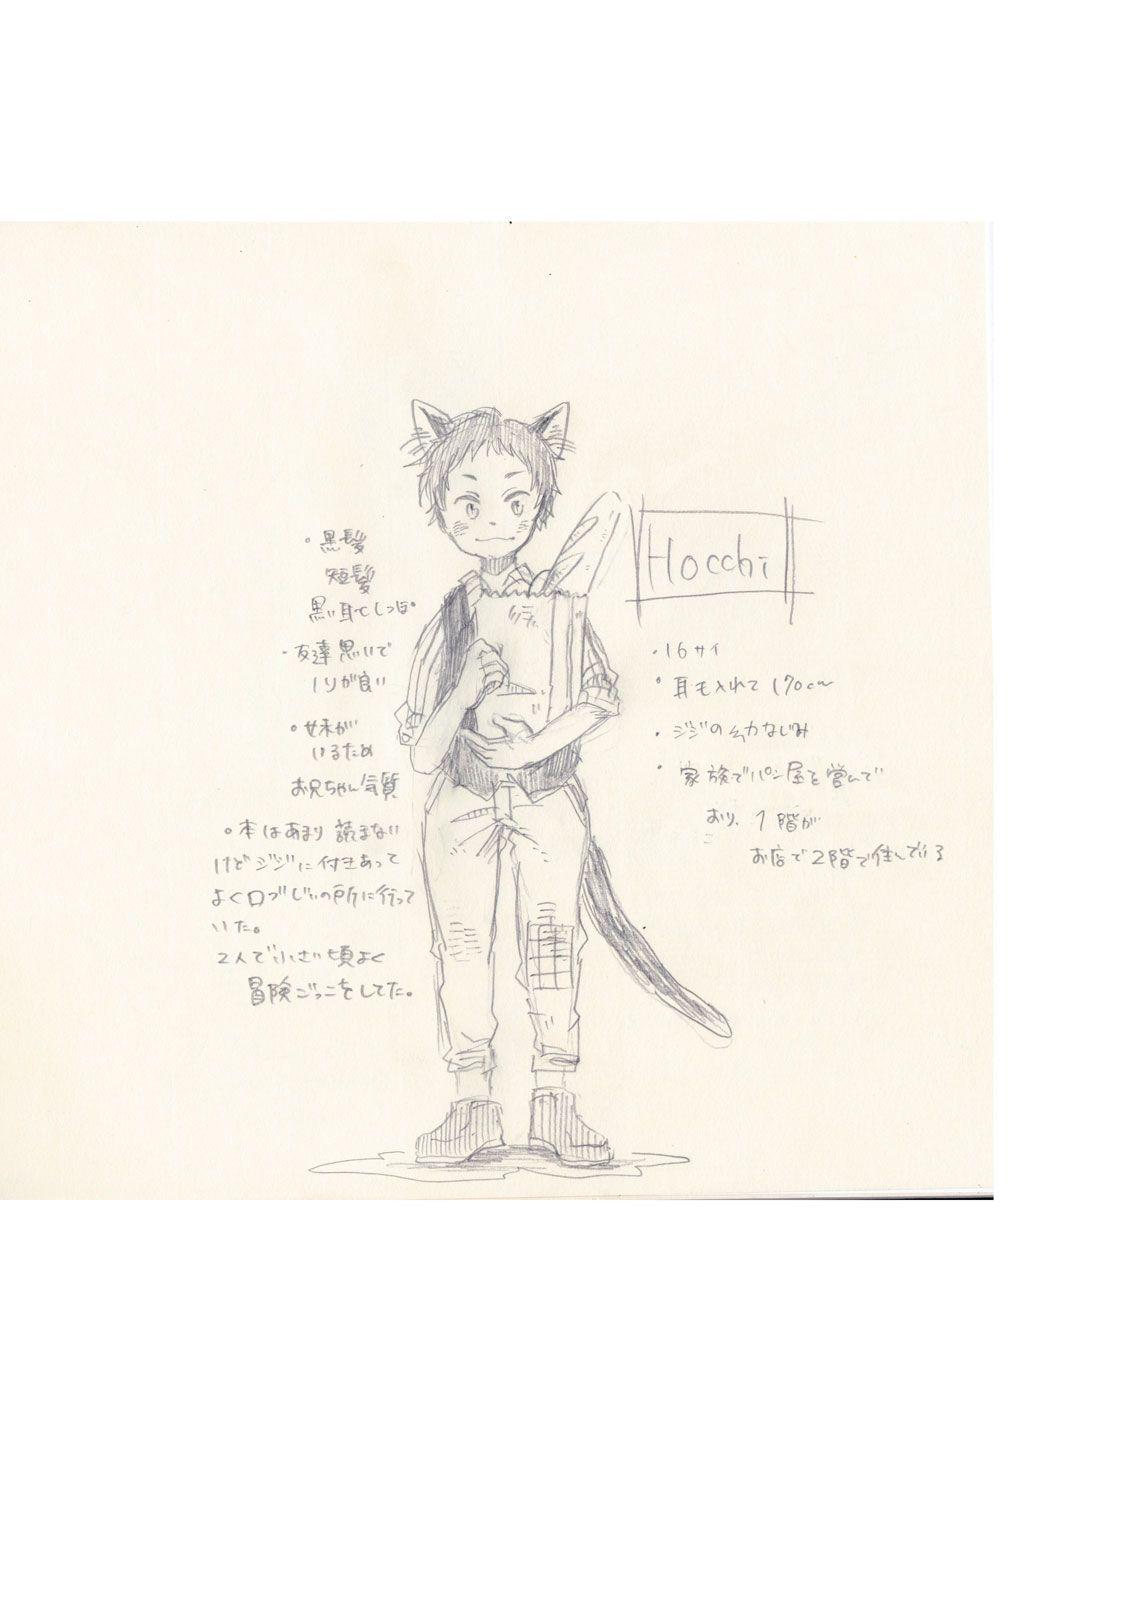 Hocchi
・16サイ
・耳も入れて170cm
・ジジの幼なじみ
・家族でパン屋を営んで
おり、1階が
お店で2階で住んでいる
・黒髪
短髪
黒い耳としっぽ
・友達思いで
ノリが良い
・妹が
いるため
お兄ちゃん気質
・本はあまり読まない
けどジジに付きあって
よくロブじいの所に行って
いた。
2人で小さい頃よく
冒険ごっこをしてた。